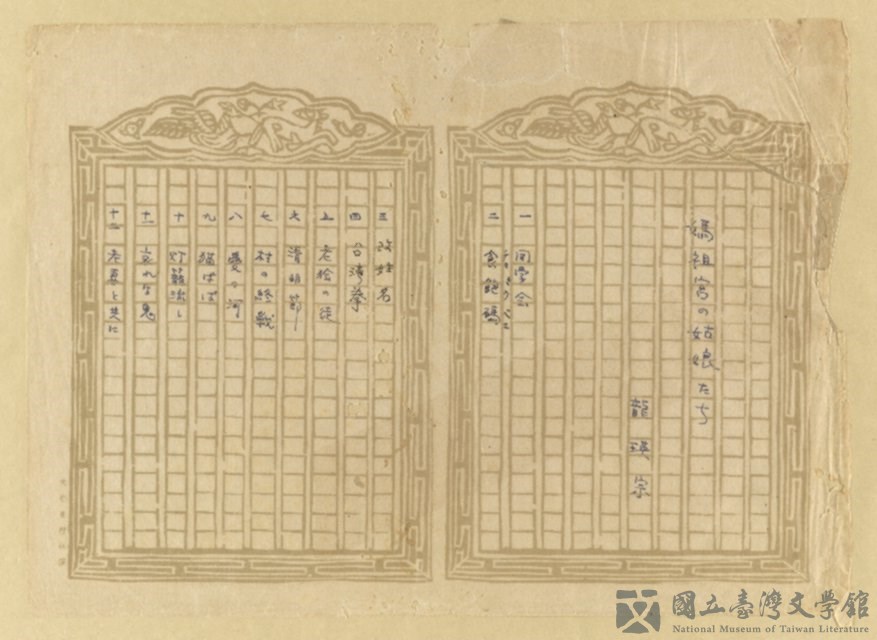 媽祖宮の姑娘たち
龍瑛宗
一 同学会
二 食飽媽
三 改姓名
四 台湾拳
五 老桧の
六 清明節
七 村の終戦
八 愛の河
九 猫ばば
十 灯籠流し
十一 哀れな鬼
十二 と共に
國立臺灣文學館
National Museum of Taiwan Literature